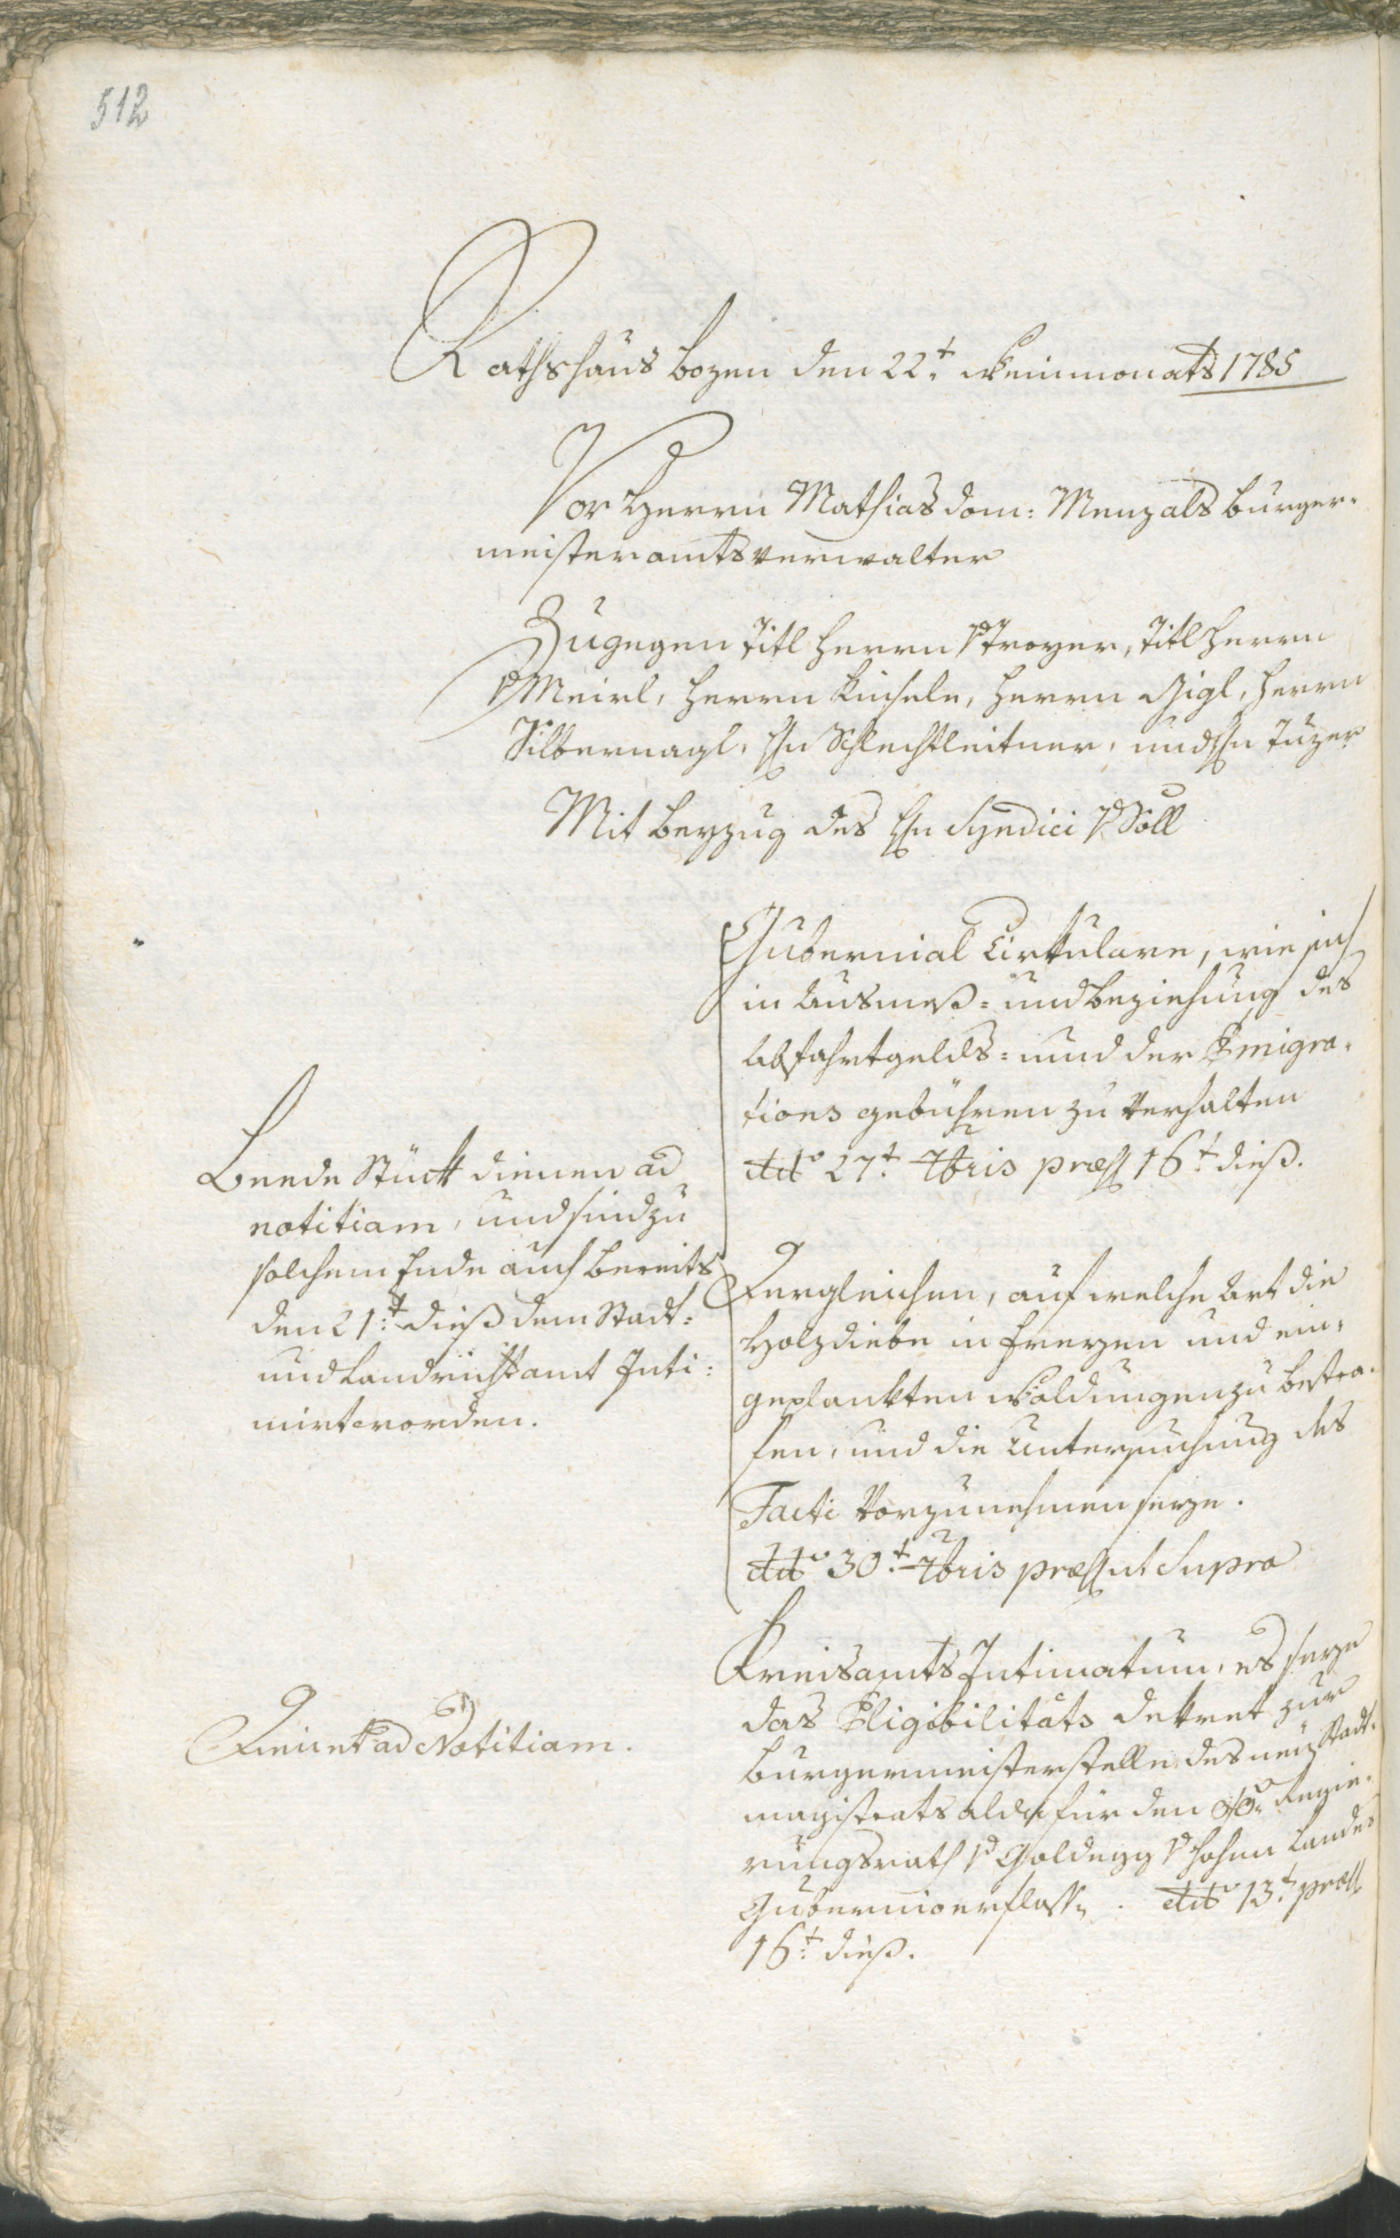 512
Rathshaus Bozen den 22.t Weinmonats 1785
Vor Herrn Mathias Dom: Menz als Burger-
meisteramtsverwalter
Zugegen Titl Herrn v Troyer, Titl Herrn
v Meirl, Herrn Kinsele, Herrn Gigl, Herrn
Silbernagl, Hn Schlechtleitner, und Hn Tuzer
Mit Beyzug des Hn Syndici v Söll
Gubernial Cirkulare, wie sich
in Ausmeß- und Beziehung des
Abfahrtgelds- und der Emigra-
tions gebühren zu verhalten
ddo 27.t 7bris præs 16.t dieß.
Beede Stück dienen ad
notitiam, und sind zu
solchem Ende auch bereits
den 21.t dieß dem Stadt-
und Landrichtamt Inti-
mirt worden.
Dergleichen, auf welche Art die
Holzdiebe in Freyen und ein-
geplankten Waldungen zu bestra-
fen, und die Untersuchung des
Facti vorzunehmen seye.
ddo 30.t 7bris præs ut Supra
Kreisamts Intimatum, es seye
das Eligibilitäts Dekret zur
Burgermeisterstelle des neuen Stadt-
magistrats alda für den Regie-
rungsrath v Goldegg v hohen Landes
Gubernio erflossen. ddo 13.t præs
16.t dieß.
Dienet ad Notitiam.